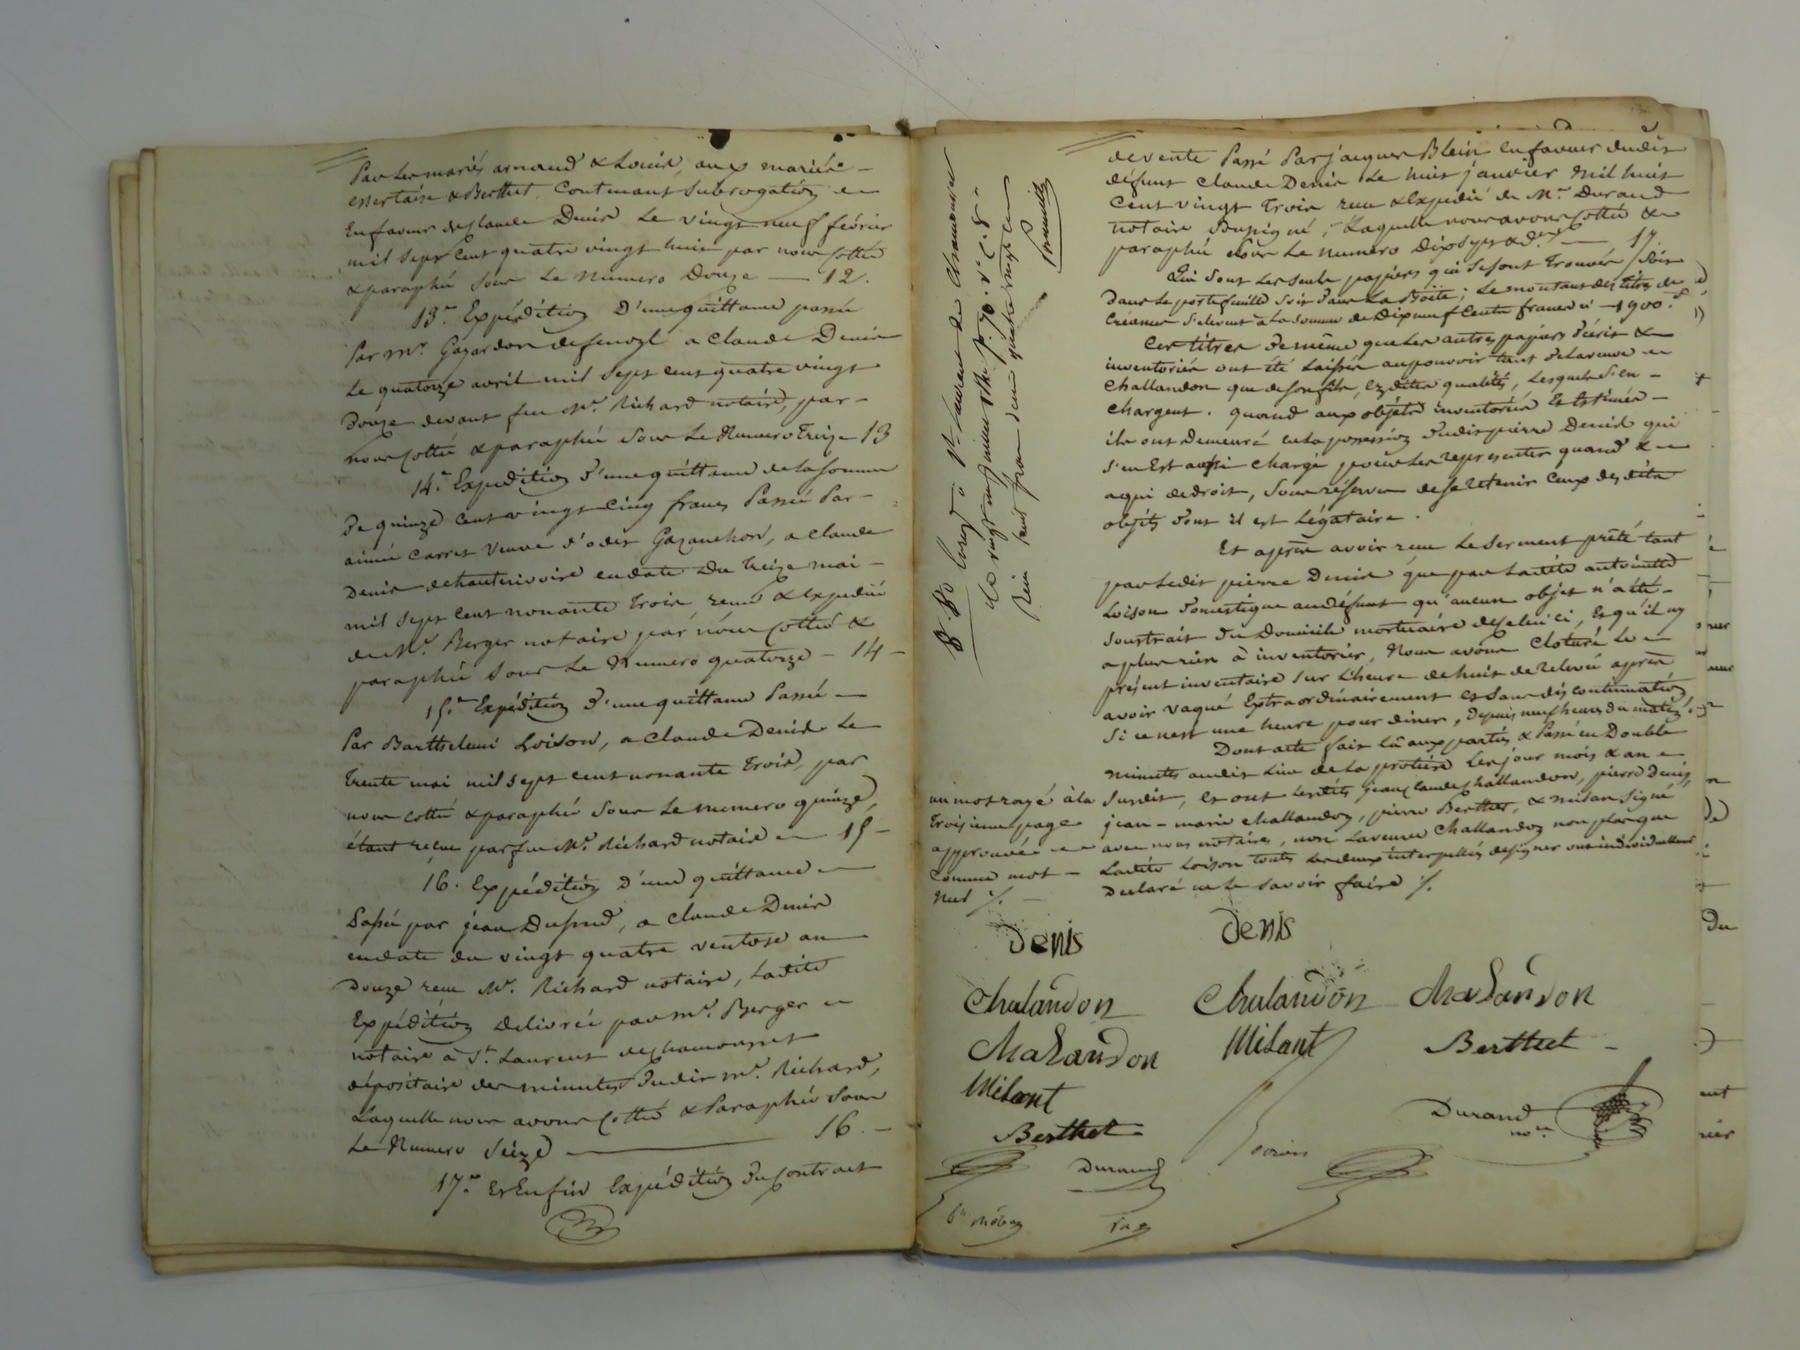 Par les mariés arnaud & Louis, aux mariés
essertaise & Berthet, contenant subrogation
En faveur de Claude Denis Le vingt neuf février
mil sept cent quatre vingt huit par nous cotté
& paraphé sous Le Numero Douze — 12.
13.e Expédition D'une quittance passée
Par Mr. Gazardon a Claude Denis
Le quatorze avril mil sept cent quatre vingt
Douze devant feu Me. Richard notaire, par
nous cotté & paraphé sous Le Numero treize 13
14.e Expédition d'une quittance de la somme
De quinze cent vingt cinq francs Passée Par
aimé Carret veuve d'odet Gazanchon, a Claude
Denis de hauterivoire en date Du treize mai
mil sept cent nonante trois, reçue & expediée
de Me. Berger notaire par nous cotté &
paraphé sous Le Numero quatorze - 14 -
15.e Expédition d'une quittance Passée
Par Barthelemi Loison, a Claude Denis Le
trente mai mil sept cent nonante trois, par
nous cotté & paraphé sous Le numero quinze,
étant reçue par feu Me. Richard notaire 15 -
16. Expédition d'une quittance
Passée par jean Dupond, a Claude Denis
en date du vingt quatre ventose an
Douze reçue Me. Richard notaire, Ladite
Expédition delivrée par Me. Berger
notaire à St. Laurent de chamousset
dépositaire des minutes dudit Me. Richard,
Laquelle nous avons cotté & Paraphé sous
Le Numero Seize — 16. -
17.e Et Enfin Expédition du contrat
de vente Passé Par jacques Blein en faveur dudit
défunt Claude Denis Le huit janvier Mil huit
cent vingt trois reçu & Expedié de Me. Durand
notaire soussigné, Laquelle nous avons cotté &
paraphé sous Le numero Dix sept & d.er — 17.
Qui sont Les seuls papiers qui se sont trouvés soit
Dans Le portefeuille soit dans La Boëte; Le montant des titres de
Créances s'élevant a La somme de Dix neuf cents francs ci — 1900.f
Ces titres de même que Les autres papiers décrits &
inventoriés ont été Laissés au pouvoir tant de La veuve
Challandon que de son fils, ez dites qualités, Lesquels s'en
chargent. quand aux objets inventoriés Et Estimés
ils ont Demeuré en La possession dudit pierre Denis qui
s'en Est aussi chargé pour Les representer quand &
a qui de droit, sous réserve de se retenir ceux desdits
objets dont il est Légataire.
Et après avoir reçu Le serment prêté tant
par Ledit pierre Denis que par Ladite antoinette
Loison Domestique au défunt qu'aucun objet n'a été
soustrait du Domicile mortuaire de celui ci, Et qu'il n'y
a plus rien à inventorier, Nous avons Cloturé Le
présent inventaire sur L'heure de huit de relevée après
avoir vaqué Extraordinairement et sans discontinuation
si ce n'est une heure pour diner, Depuis neuf heures du matin.
Dont acte fait Lû aux parties & Passé en Double
minutes audit Lieu de La Les jour mois & an
susdit, Et ont Lesdits jean Claude Challandon, pierre Denis,
jean-marie Challandon, pierre Berthet, & milan signé
avec nous notaires, non La veuve Challandon non plus que
Ladite Loison toutes Les deux interpellées de signer ont individuellement
Declaré ne Le savoir faire ./.
un mot rayé à la
troisieme page
approuvée
comme mot
nul ./.
Enregé à St. Laurent de Chamousset
Le vingt neuf janvier f.o 70. V.o C. 8
Denis
Denis
Chalandon
Chalandon
Chalandon
Chalandon
Milant
Berthet
Milant
Berthet
Durand
no.re
Durand